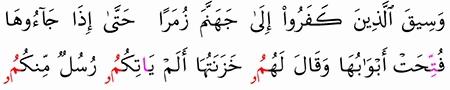 وَسِيقَ ٱلَّذِينَ كَفَرُوٓاْ إِلَىٰ جَهَنَّمَ زُمَرًا حَتَّىٰٓ إِذَا جَآءُوهَا
فُتِّحَتْ أَبْوَٰبُهَا وَقَالَ لَهُمُۥ خَزَنَتُهَا أَلَمْ يَاتِكُمُۥ رُسُلٌ مِّنكُمُۥ